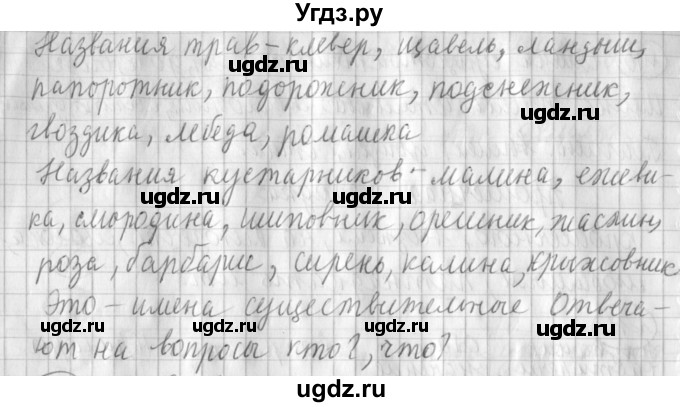 Угдз.ру
Названия трав – клевер, щавель, ландыш,
папоротник, подорожник, подснежник,
гвоздика, лебеда, ромашка
Названия кустарников – малина, ежеви-
ка, смородина, шиповник, орешник, жасмин,
роза, барбарис, сирень, калина, крыжовник.
Это – имена существительные Отвеча-
ют на вопросы кто?, что?
ugdz.ru
ugdz.ru
ugdz.ru
ugdz.ru
ugdz.ru
ugdz.ru
ugdz.ru
ugdz.ru
ugdz.ru
ugdz.ru